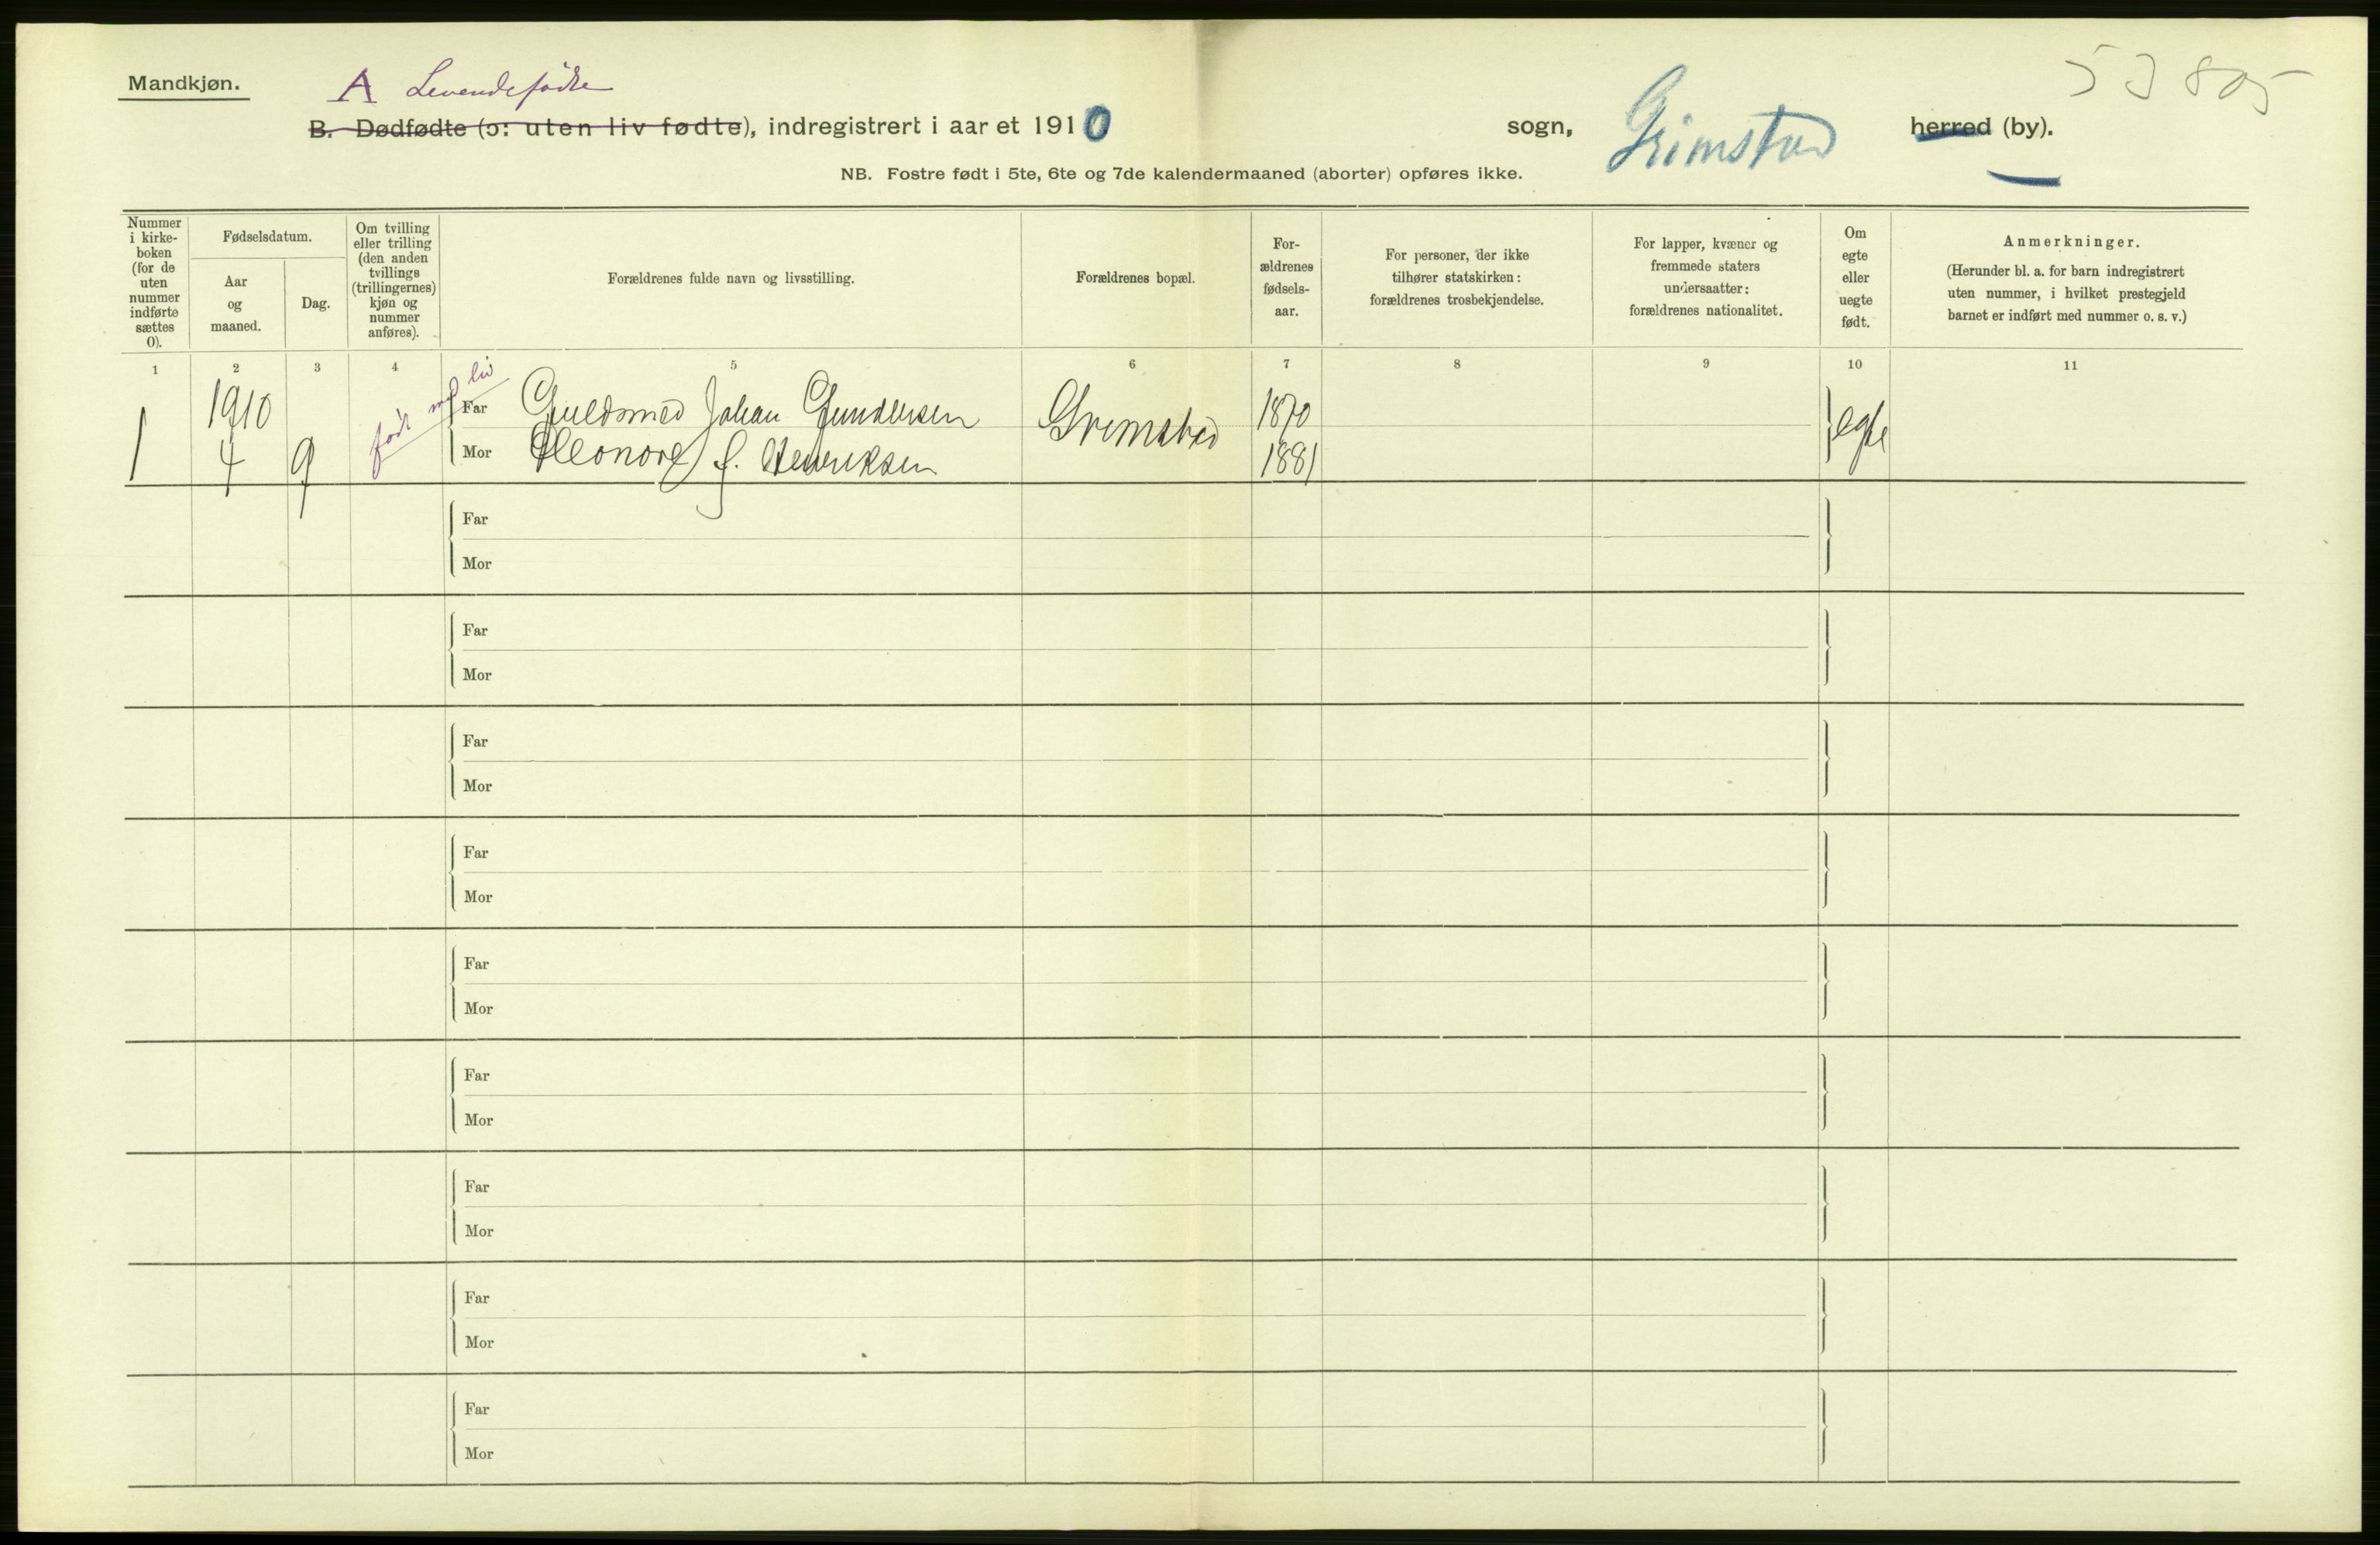 53805
Mandkjøn.
A Levendefødte
B. Dødfødte (ɔ: uten liv fødte), indregistrert i aaret 1910 sogn, Grimstad herred (by).
NB. Fostre født i 5te, 6te og 7de kalendermaaned (aborter) opføres ikke.
Nummer
i kirke-
boken
(for de
uten
nummer
indførte
sættes
0).
Fødselsdatum.
Aar
og
maaned.
Dag.
Om tvilling
eller trilling
(den anden
tvillings
(trillingernes)
kjøn og
nummer
anføres).
Forældrenes fulde navn og livsstilling.
Forældrenes bopæl.
For-
ældrenes
fødsels-
aar.
For personer, der ikke
tilhører statskirken:
forældrenes trosbekjendelse.
For lapper, kvæner og
fremmede staters
undersaatter:
forældrenes nationalitet.
Om
egte
eller
uegte
født.
Anmerkninger.
(Herunder bl. a. for barn indregistrert
uten nummer, i hvilket prestegjeld
barnet er indført med nummer o. s. v.)
1 2 3 4 5 6 7 8 9 10 11
født med liv
1910 Far Guldsmed Johan Gundersen Grimstad 1870 egte
1 4 9 Mor Eleonore f. Henriksen 1881
Far
Mor
Far
Mor
Far
Mor
Far
Mor
Far
Mor
Far
Mor
Far
Mor
Far
Mor
Far
Mor